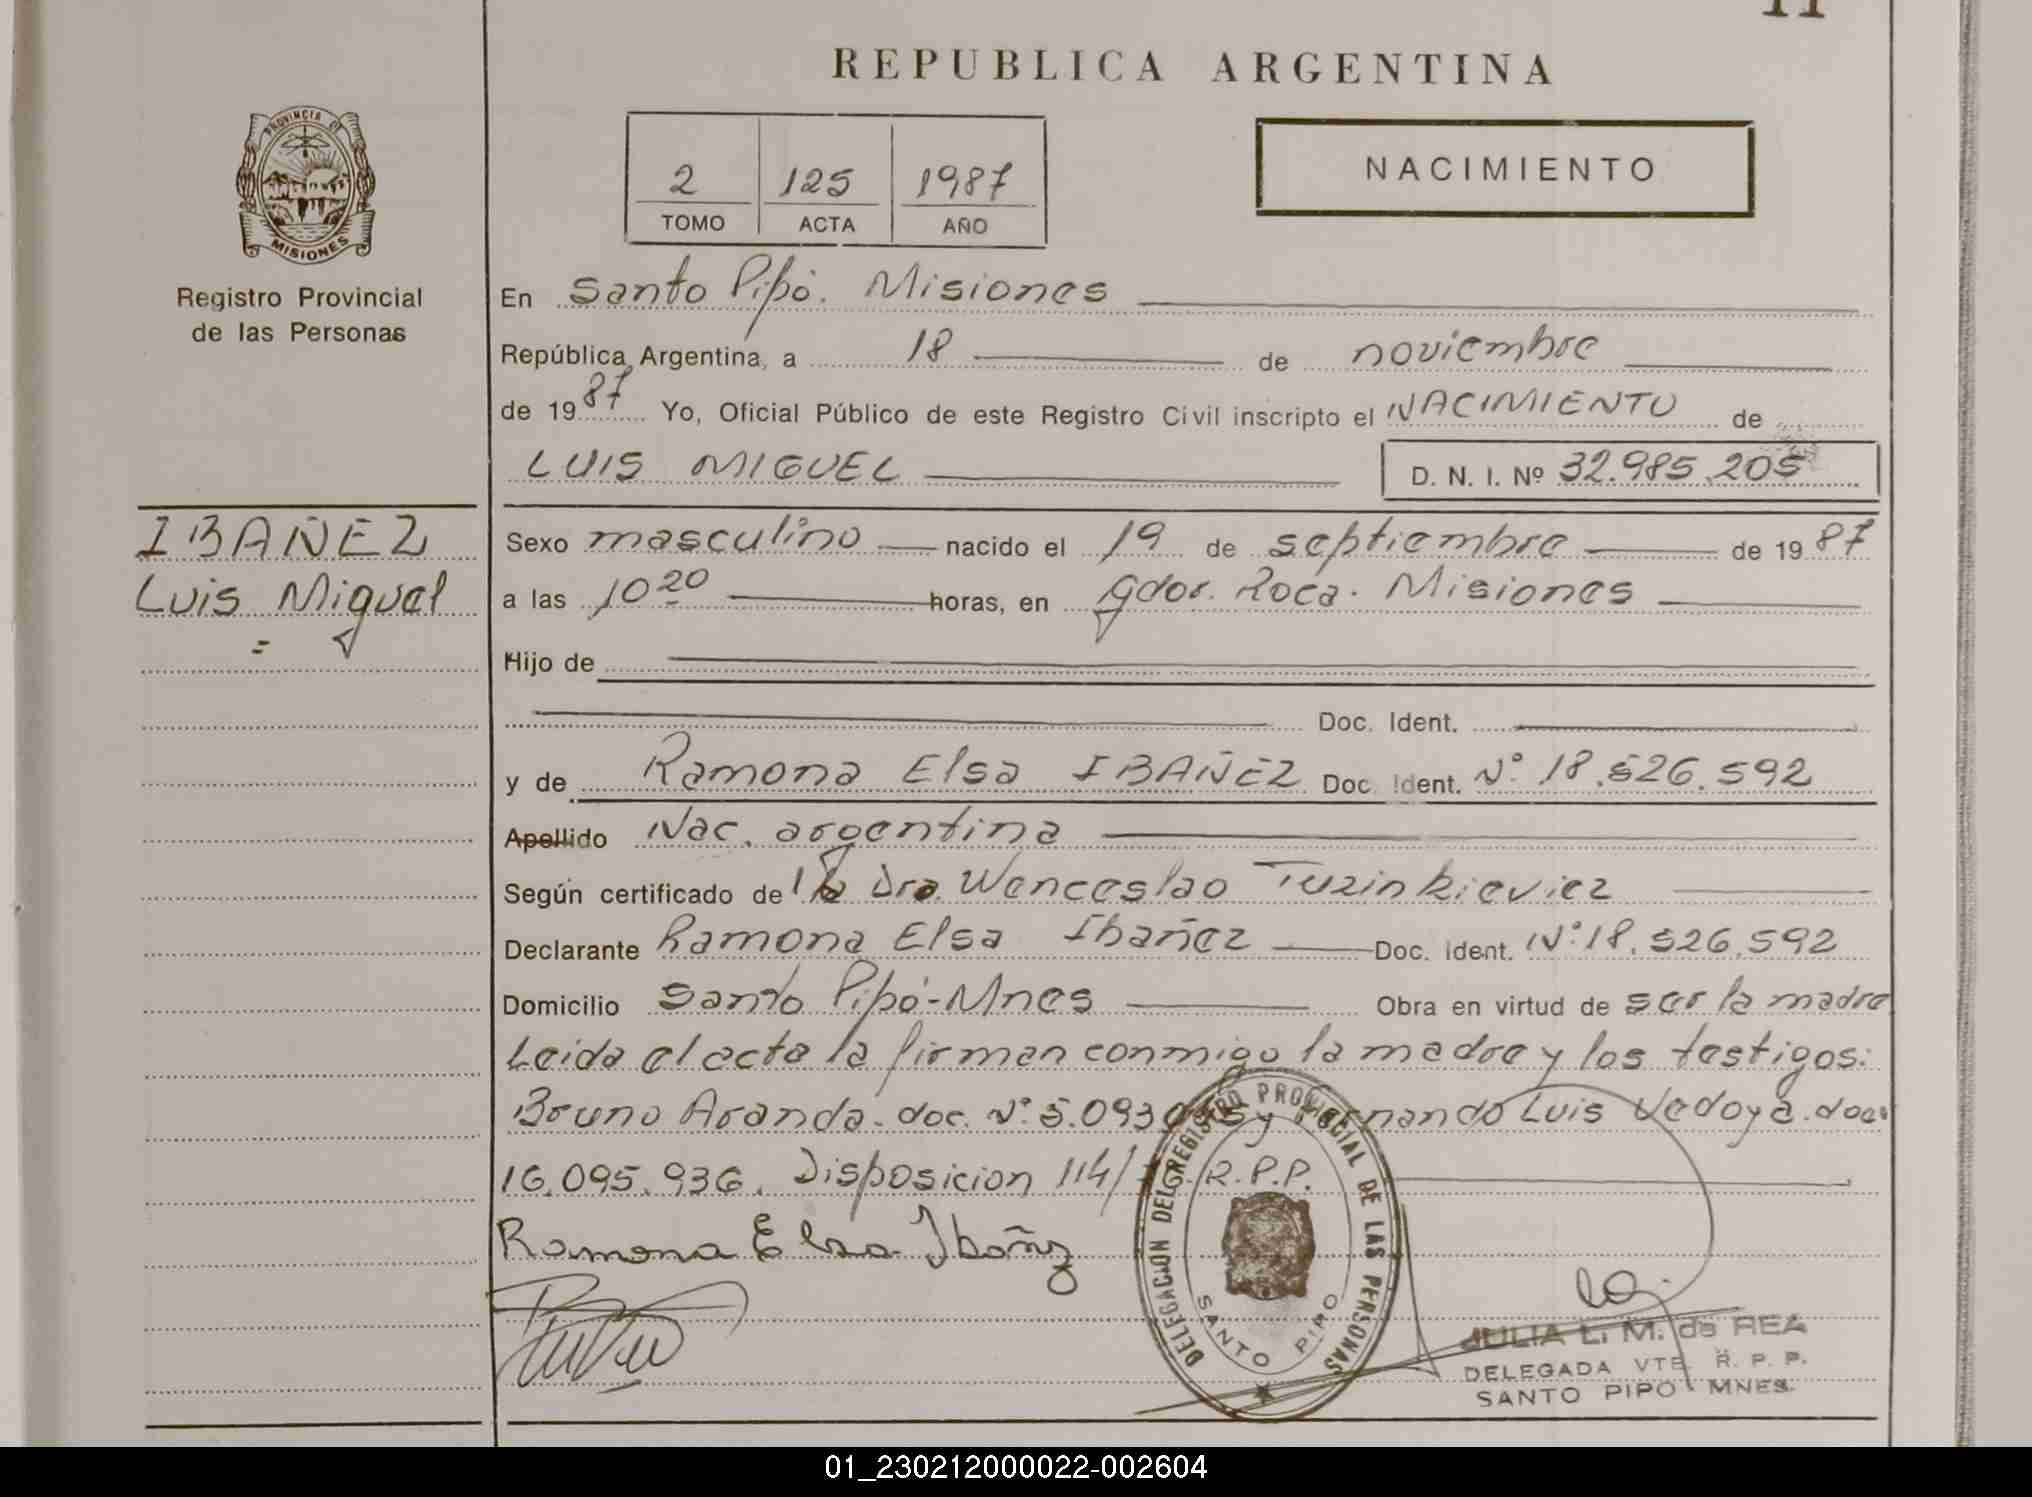 11
REPUBLICA ARGENTINA
PROVINCIA DE
MISIONES
Registro Provincial
de las Personas
2 125 1987
TOMO ACTA AÑO
NACIMIENTO
En Santo Pipó. Misiones
República Argentina, a 18 de noviembre
de 1987 Yo, Oficial Público de este Registro Civil inscripto el NACIMIENTO de
LUIS MIGUEL D. N. I. Nº 32.985.205
IBAÑEZ
Luis Miguel
Sexo masculino nacido el 19 de septiembre de 1987
a las 10 20 horas, en Gdor. Roca. Misiones
Hijo de
Doc. Ident.
y de Ramona Elsa IBAÑEZ Doc. Ident. Nº 18.526.592
Apellido Nac. argentina
Según certificado de Dra. Wenceslao Tuzinkieviez
Declarante Ramona Elsa Ibañez Doc. Ident. Nº 18.526.592
Domicilio Santo Pipó-Mnes Obra en virtud de ser la madre
Leida el acta la firman conmigo la madre y los testigos:
Bruno Aranda. doc. Nº 5.093 y Luis Vedoya. doc.
16.095.936. Disposicion 114/ R.P.P.
Ramona Elsa Ibañz
DELEGACION DEL REGISTRO PROVINCIAL DE LAS PERSONAS
SANTO PIPO
JULIA L. M. de REA
DELEGADA VTE. R. P. P.
SANTO PIPO MNES.
01_230212000022-002604